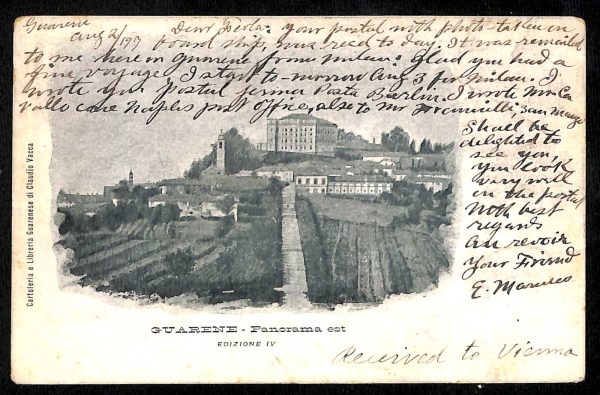 Guarene
Aug 2/ 1907 Dear Isola: Your postal with photo taken on
board ship, was rec'd to day. It was remailed
to me here in Guarene from Milan. Glad you had a
fine voyage. I start to-morrow Aug 3 for Milan. I
wrote you Postal ferma Posta Berlin. I wrote Mr Ca
vallo care Naples post office, also to Mr San Marzo
Shall be
delighted to
see you,
you look
very well
in the postal
With best
regards
Au revoir
Your Friend
E.
Cartoleria e Libreria Guarenese di Claudio Vacca
GUARENE - Panorama est
EDIZIONE IV
Received to Vienna